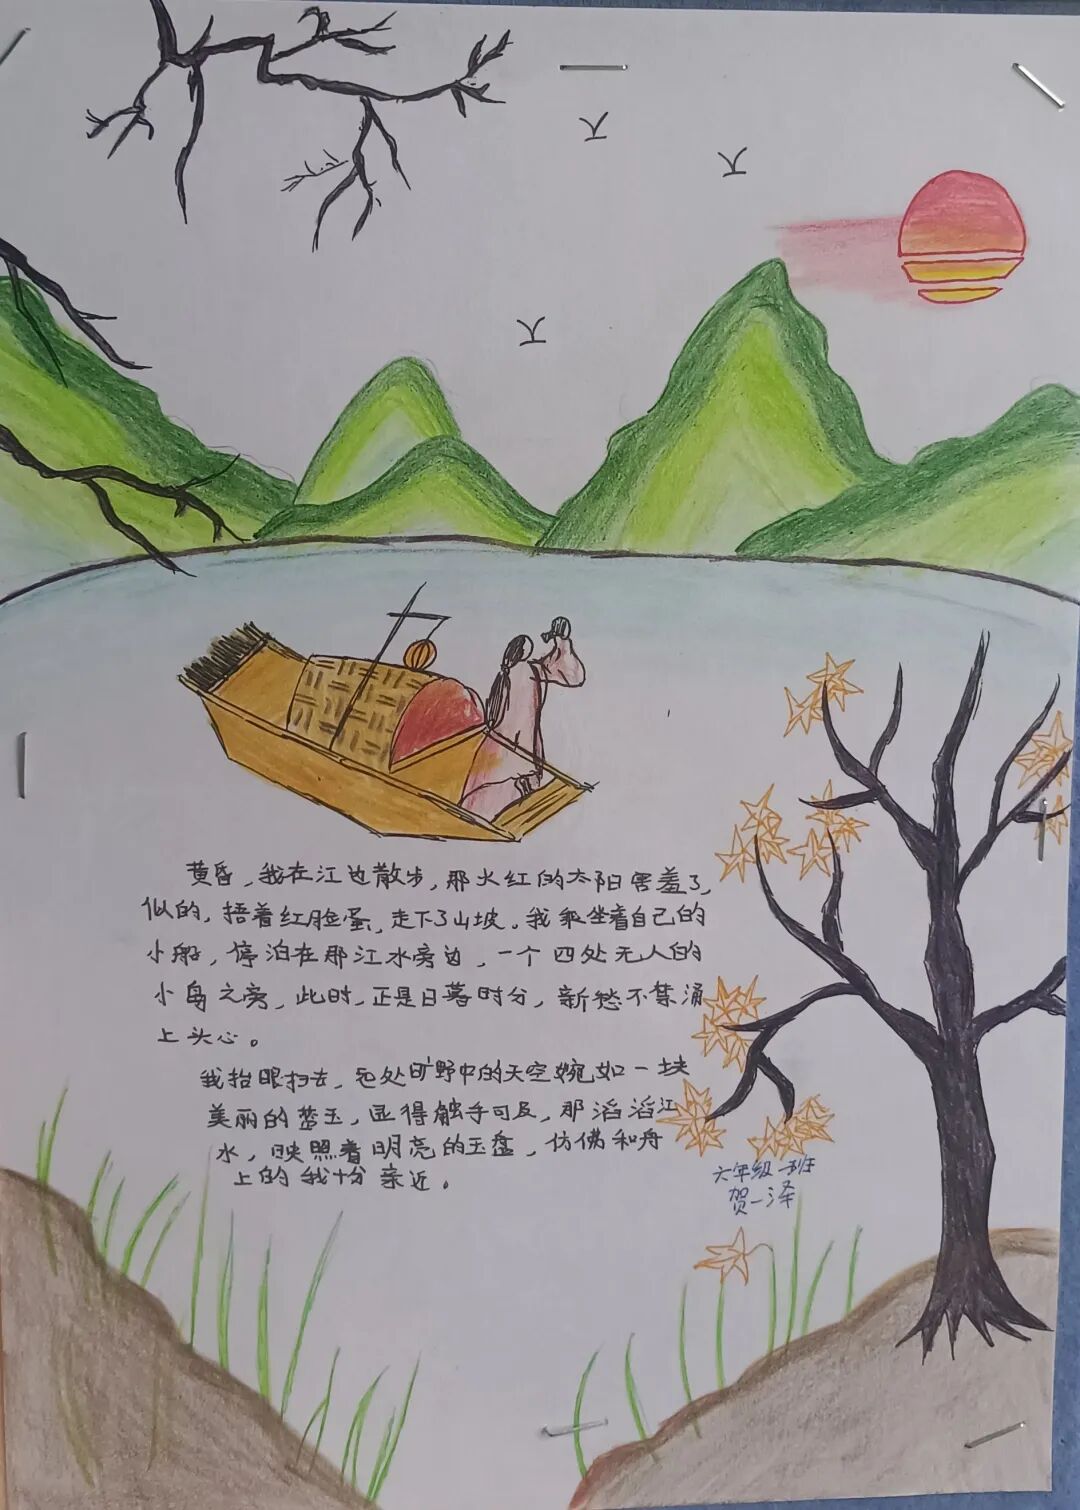 黄昏，我在江边散步，那火红的太阳害羞了
似的，捂着红脸蛋，走下了山坡。我乘坐着自己的
小船，停泊在那江水旁边，一个四处无人的
小岛之旁，此时，正是日暮时分，新愁不禁涌
上头心。
我抬眼扫去，处旷野中的天空婉如一块
美丽的蓝玉，显得触手可及，那滔滔江
水，映照着明亮的玉盘，仿佛和舟
上的我十分亲近。
六年级一班
贺一泽